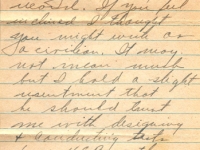 record. If you feel
inclined I thought
you might work as
a civilian. It may
not mean much
but I hold a slight
resentment that
he should trust
me with designing
& conducting tests